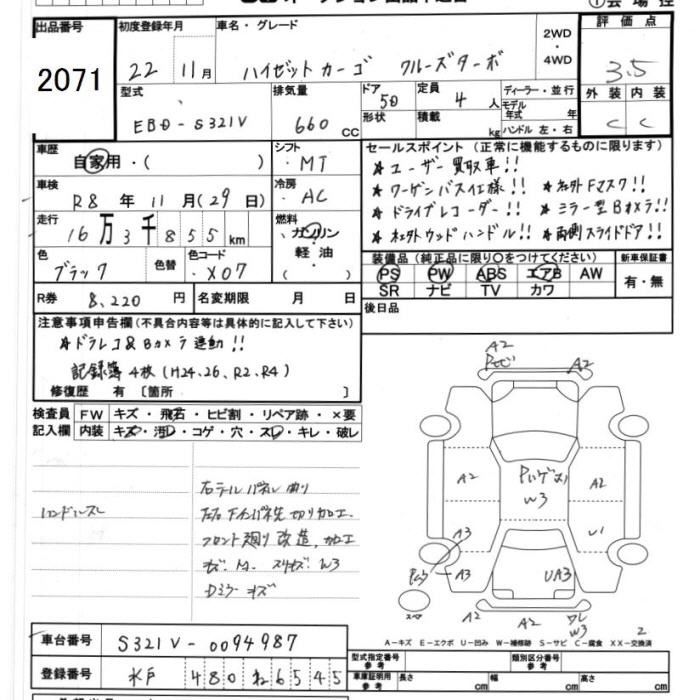 出品番号
2071
初度登録年月
22 11月
車名・グレード
ハイゼットカーゴ クルーズターボ
2WD
・
4WD
評価点
3.5
外装 内装
C C
型式
EBD-S321V
排気量
660 cc
ドア
5D
形状
定員
4人
積載
kg
ディーラー・並行
モデル
年式 年
ハンドル 左・右
車歴
自家用・( )
シフト
MT
車検
R8年11月(29日)
冷房
AC
走行
16万3千855km
燃料
ガソリン
・
軽油
・( )
色
ブラック
色替
色コード
X07
R券 8,220円
名変期限 月 日
セールスポイント(正常に機能するものに限ります)
★ユーザー買取車!!
★ワーゲンバス仕様!! ★社外Fマスク!!
★ドライブレコーダー!! ★ミラー型Bカメラ!!
★社外ウッドハンドル!! ★両側スライドドア!!
装備品(純正品に限り○をつけてください)
PS PW ABS エアB AW
SR ナビ TV カワ
新車保証書
有・無
後日品
注意事項申告欄(不具合内容等は具体的に記入して下さい)
★ドラレコ&Bカメラ連動!!
記録簿4枚(H24,26,R2,R4)
修復歴 有〔箇所 〕
検査員
記入欄
FW キズ・飛石・ヒビ割・リペア跡・×要
内装 キズ・汚れ・コゲ・穴・スレ・キレ・破レ
ハンドルスレ
右テールパネル曲り
切り加工
フロント廻り改造、加工
W3
Dミラーキズ
A2
A2
A2
W3
A2
A3
U1
A3
UA3
A2
A2
W3
2
A-キズ E-エクボ U-凹み W-補修跡 S-サビ C-腐食 XX-交換済
車台番号 S321V-0094987
登録番号 水戸 480 ね 6545
型式指定番号
参考
類別区分番号
参考
車庫証明用
参考
長さ cm
幅 cm
高さ cm